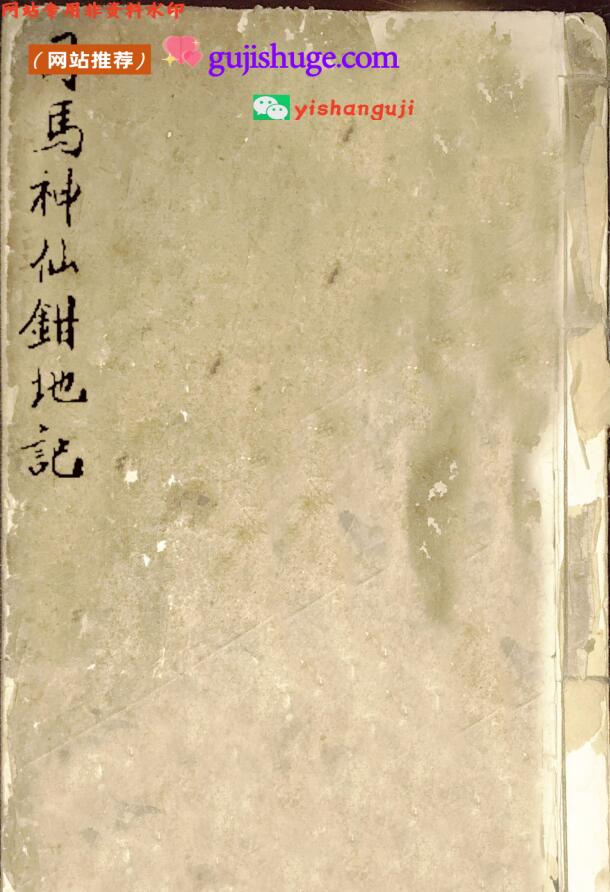 网站专用非资料水印
（网站推荐） gujishuge.com
yishanguji
司馬神仙鉗地記